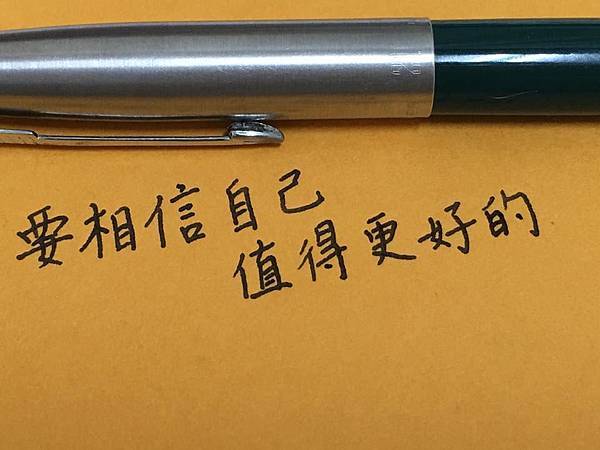 要相信自己
值得更好的